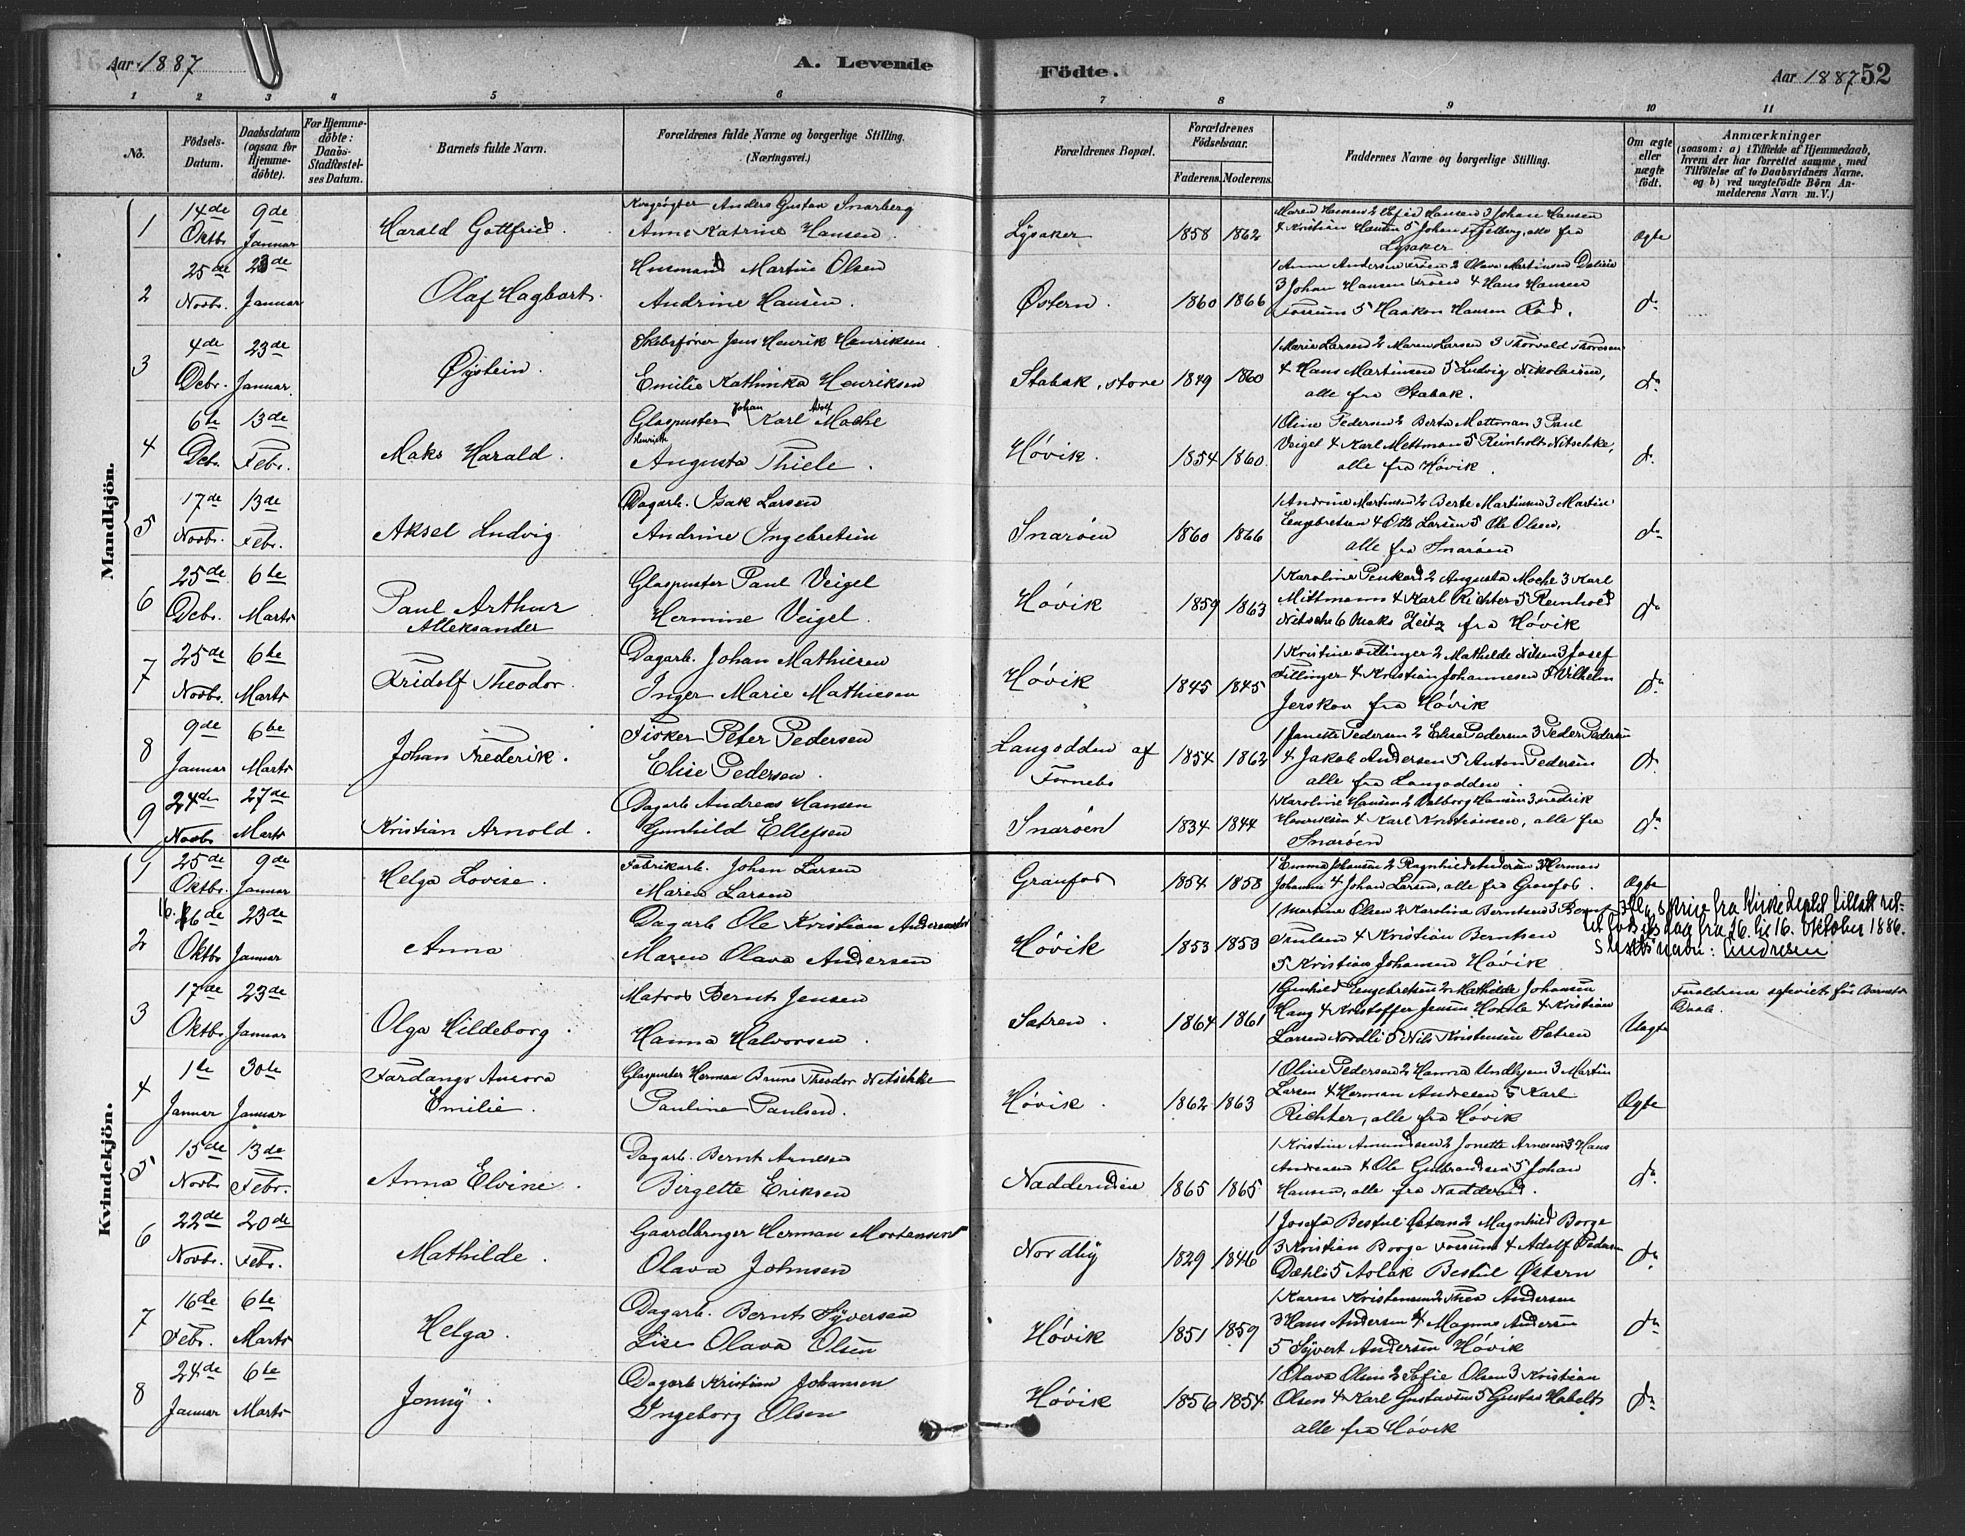 Aar 1887
A. Levende
Födte.
Aar 1887
52
1 2 3 4 5 6 7 8 9 10 11
No.
Födsels-
Datum.
Daabsdatum
(ogsaa for
Hjemme-
döbte).
For Hjemme-
döbte:
Daabs-
Stadfæstel-
ses Datum.
Barnets fulde Navn.
Forældrenes fulde Navne og borgerlige Stilling.
(Næringsvei.)
Forældrenes Bopæl.
Forældrenes
Födselsaar.
Faderens. Moderens.
Faddernes Navne og borgerlige Stilling.
Om ægte
eller
uægte
födt.
Anmærkninger
(saasom: a) i Tilfælde af Hjemmedaab,
hvem der har forrettet samme, med
Tilföielse af to Daabsvidners Navne.
og b) ved uægtefödte Börn An-
melderens Navn m. V.)
Mandkjön.
1
14de Oktbr.
9de Januar
Harald Gottfried.
Anders Gustav Snarberg
Anne Katrine Hansen.
Lysaker
1858 1862
Maren Hansen 2 Sofie Hansen 3 Johan Hansen
4 Kristian Hansen 5 Johan alle fra
Lysaker
Ægte
2
25de Novbr.
23de Januar
Olaf Hagbart.
Husmand Martin Olsen
Andrine Hansen.
Østern.
1860 1866
1 Anne Andersen Troen 2 Olava Martinsen
3 Johan Hansen Troen 4 Hans Hansen
Fossum 5 Haakon Hansen Rød.
do
3
4de Debr.
23de Januar.
Øystein.
Skibsfører Jens Henrik Henriksen
Emilie Kathinka Henriksen
Stabæk, store
1849 1860
1 Marie Larsen 2 Maren Larsen 3 Thorvald Thoresen
4 Hans Martinsen 5 Ludvig Nikolaisen,
alle fra Stabæk.
do
4
6te Deb.
13de Febr.
Maks Harald.
Glaspuster Johan Karl Adolf Moche
Henriette
Augusta Thiele.
Høvik.
1854 1860.
1 Oline Pedersen 2 Berta Mettman 3 Paul
Veigel 4 Karl Mettman 5 Reinholt Nitschke,
alle fra Høvik.
do
5
17de Novbr.
13de Febr.
Aksel Ludvig
Dagarb. Isak Larsen
Andrine Ingebretsen
Snarøen
1860 1866
1 Andrine Martinsen 2 Berte Martinsen 3 Martin
Engebretsen 4 Otto Larsen 5 Ole Olsen,
alle fra Snarøen
do
6
25de Debr.
6te Marts
Paul Arthur
Alleksander
Glaspuster Paul Veigel
Hermine Veigel.
Høvik
1859 1863
1 Karoline Penkerd 2 Augusta Moche 3 Karl
Mittmann 4 Karl Richter 5 Reinhold
Nitsche 6 Maks Zeitz fra Høvik
do
7
25de Novbr.
6te Marts
Fridolf Theodor.
Dagarb. Johan Mathiesen
Inger Marie Mathiesen
Høvik
1845 1845
1 Kristine Fillinger 2 Mathilde Nilsen 3 Josef
Fillinger 4 Kristian Johannesen 5 Vilhelm
Jerskov fra Høvik
do
8
9de Januar
6te Marts
Johan Frederik.
Fisker Peter Pedersen
Elise Pedersen.
Langodden af
Fornebo
1854 1862
1 Janette Pedersen 2 Elise Pedersen 3 Peder Pedersen
4 Jakob Andersen 5 Anton Pedersen
alle fra Langodden.
do
9
24de Novbr
27de Marts
Kristian Arnold.
Dagarb Andreas Hansen
Gunhild Ellefsen
Snarøen
1834 1844
1 Karoline Hansen 2 Valborg Hansen 3 Fredrik
Henriksen 4 Karl Kristiansen, alle fra
Snarøen
do
Kvindekjön.
1
25de Oktbr.
9de Januar
Helga Lovise.
Fabrikarb. Johan Larsen
Maren Larsen
Granfos
1854 1858
1 Emma Johansen 2 Ragnhild Andersen 3 Herman
Johansen 4 Johan Larsen, alle fra Granfos.
Ægte
2
16. 26de Oktbr
23de Januar
Anna
Dagarb Ole Kristian Andersen
Maren Olava Andersen
Høvik
1853 1853
1 Martine Olsen 2 Karoline Berntsen 3 Bernt
Paulsen 4 Kristian Berntsen
5 Kristian Johansen Høvik
skriv fra Kirkedeptet tillatt ret-
tet fødselsdag fra 26. til 16. Oktober 1886.
Slektsnavn: Andresen
3
17de Oktbr.
23de Januar
Olga Hildeborg.
Matros Bernt Jensen
Hanna Halvorsen.
Sætren.
1864 1861
1 Gunhild Engebretsen 2 Mathilde Johansen
Haug 3 Kristoffer Jensen Holtle 4 Kristian
Larsen Nordli 5 Nils Kristensen Sætren
Uægte
Forældrene før Barnets
Daab.
4
1te Januar
30te Januar
Fardangs Aurora
Emilie.
Glaspuster Herman Bruno Theodor Nitschke
Pauline Paulsen.
Høvik.
1862 1863
1 Oline Pedersen 2 Hanna Undhjem 3 Martin
Larsen 4 Herman Andresen 5 Karl
Richter, alle fra Høvik
Ægte
5
15de Novbr
13de Febr.
Anna Elvine.
Dagarb. Bernt Arnesen
Birgette Eriksen
Nadderudeie
1865 1865
1 Kristine Amundsen 2 Jonette Arnesen 3 Hans
Andreasen 4 Ole Gulbrandsen 5 Johan
Hansen, alle fra Nadderud.
do
6
22de Novbr.
20de Febr.
Mathilde.
Gaardbruger Herman Mortensen
Olava Johnsen
Nordby
1829 1846
1 Josefa Bestul Østern 2 Magnhild Borge
3 Kristian Borge Fossum 4 Adolf Pedersen
Dæhli 5 Aslak Bestul Østern
do
7
16de Febr.
6te Marts
Helga.
Dagarb. Bernt Syversen
Lise Olava Olsen
Høvik
1851 1859
1 Karen Kristensen 2 Thea Andersen
3 Hans Andersen 4 Magnus Andersen
5 Syvert Andersen Høvik
do
8
24de Januar
6te Marts
Jonny.
Dagarb Kristian Johansen
Ingeborg Olsen
Høvik
1856 1854
1 Olava Olsen 2 Sofie Olsen 3 Kristian
Olsen 4 Karl Gustavsen 5 Gustav Habelt
alle fra Høvik
do